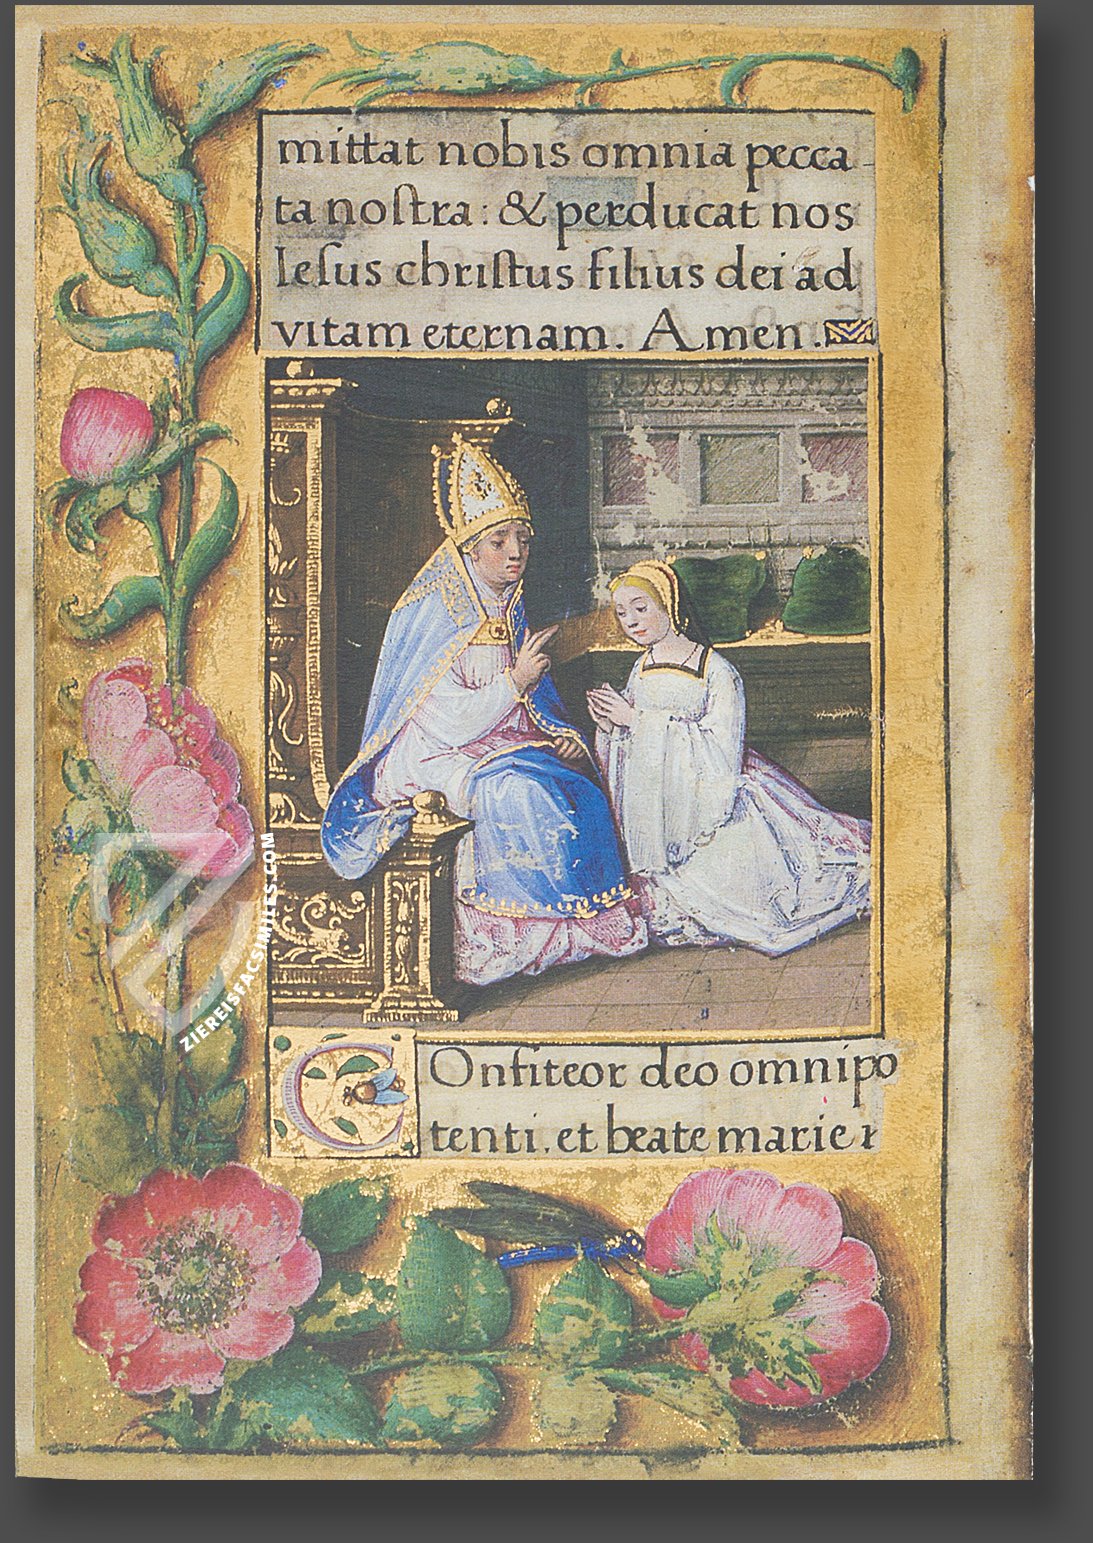 mittat nobis omnia pecca
ta noſtra : & perducat nos
Ieſus chriſtus filius dei ad
vitam eternam. Amen.
COnfiteor deo omnipo
tenti. et beate marie
ZIEREISFACSIMILES.COM